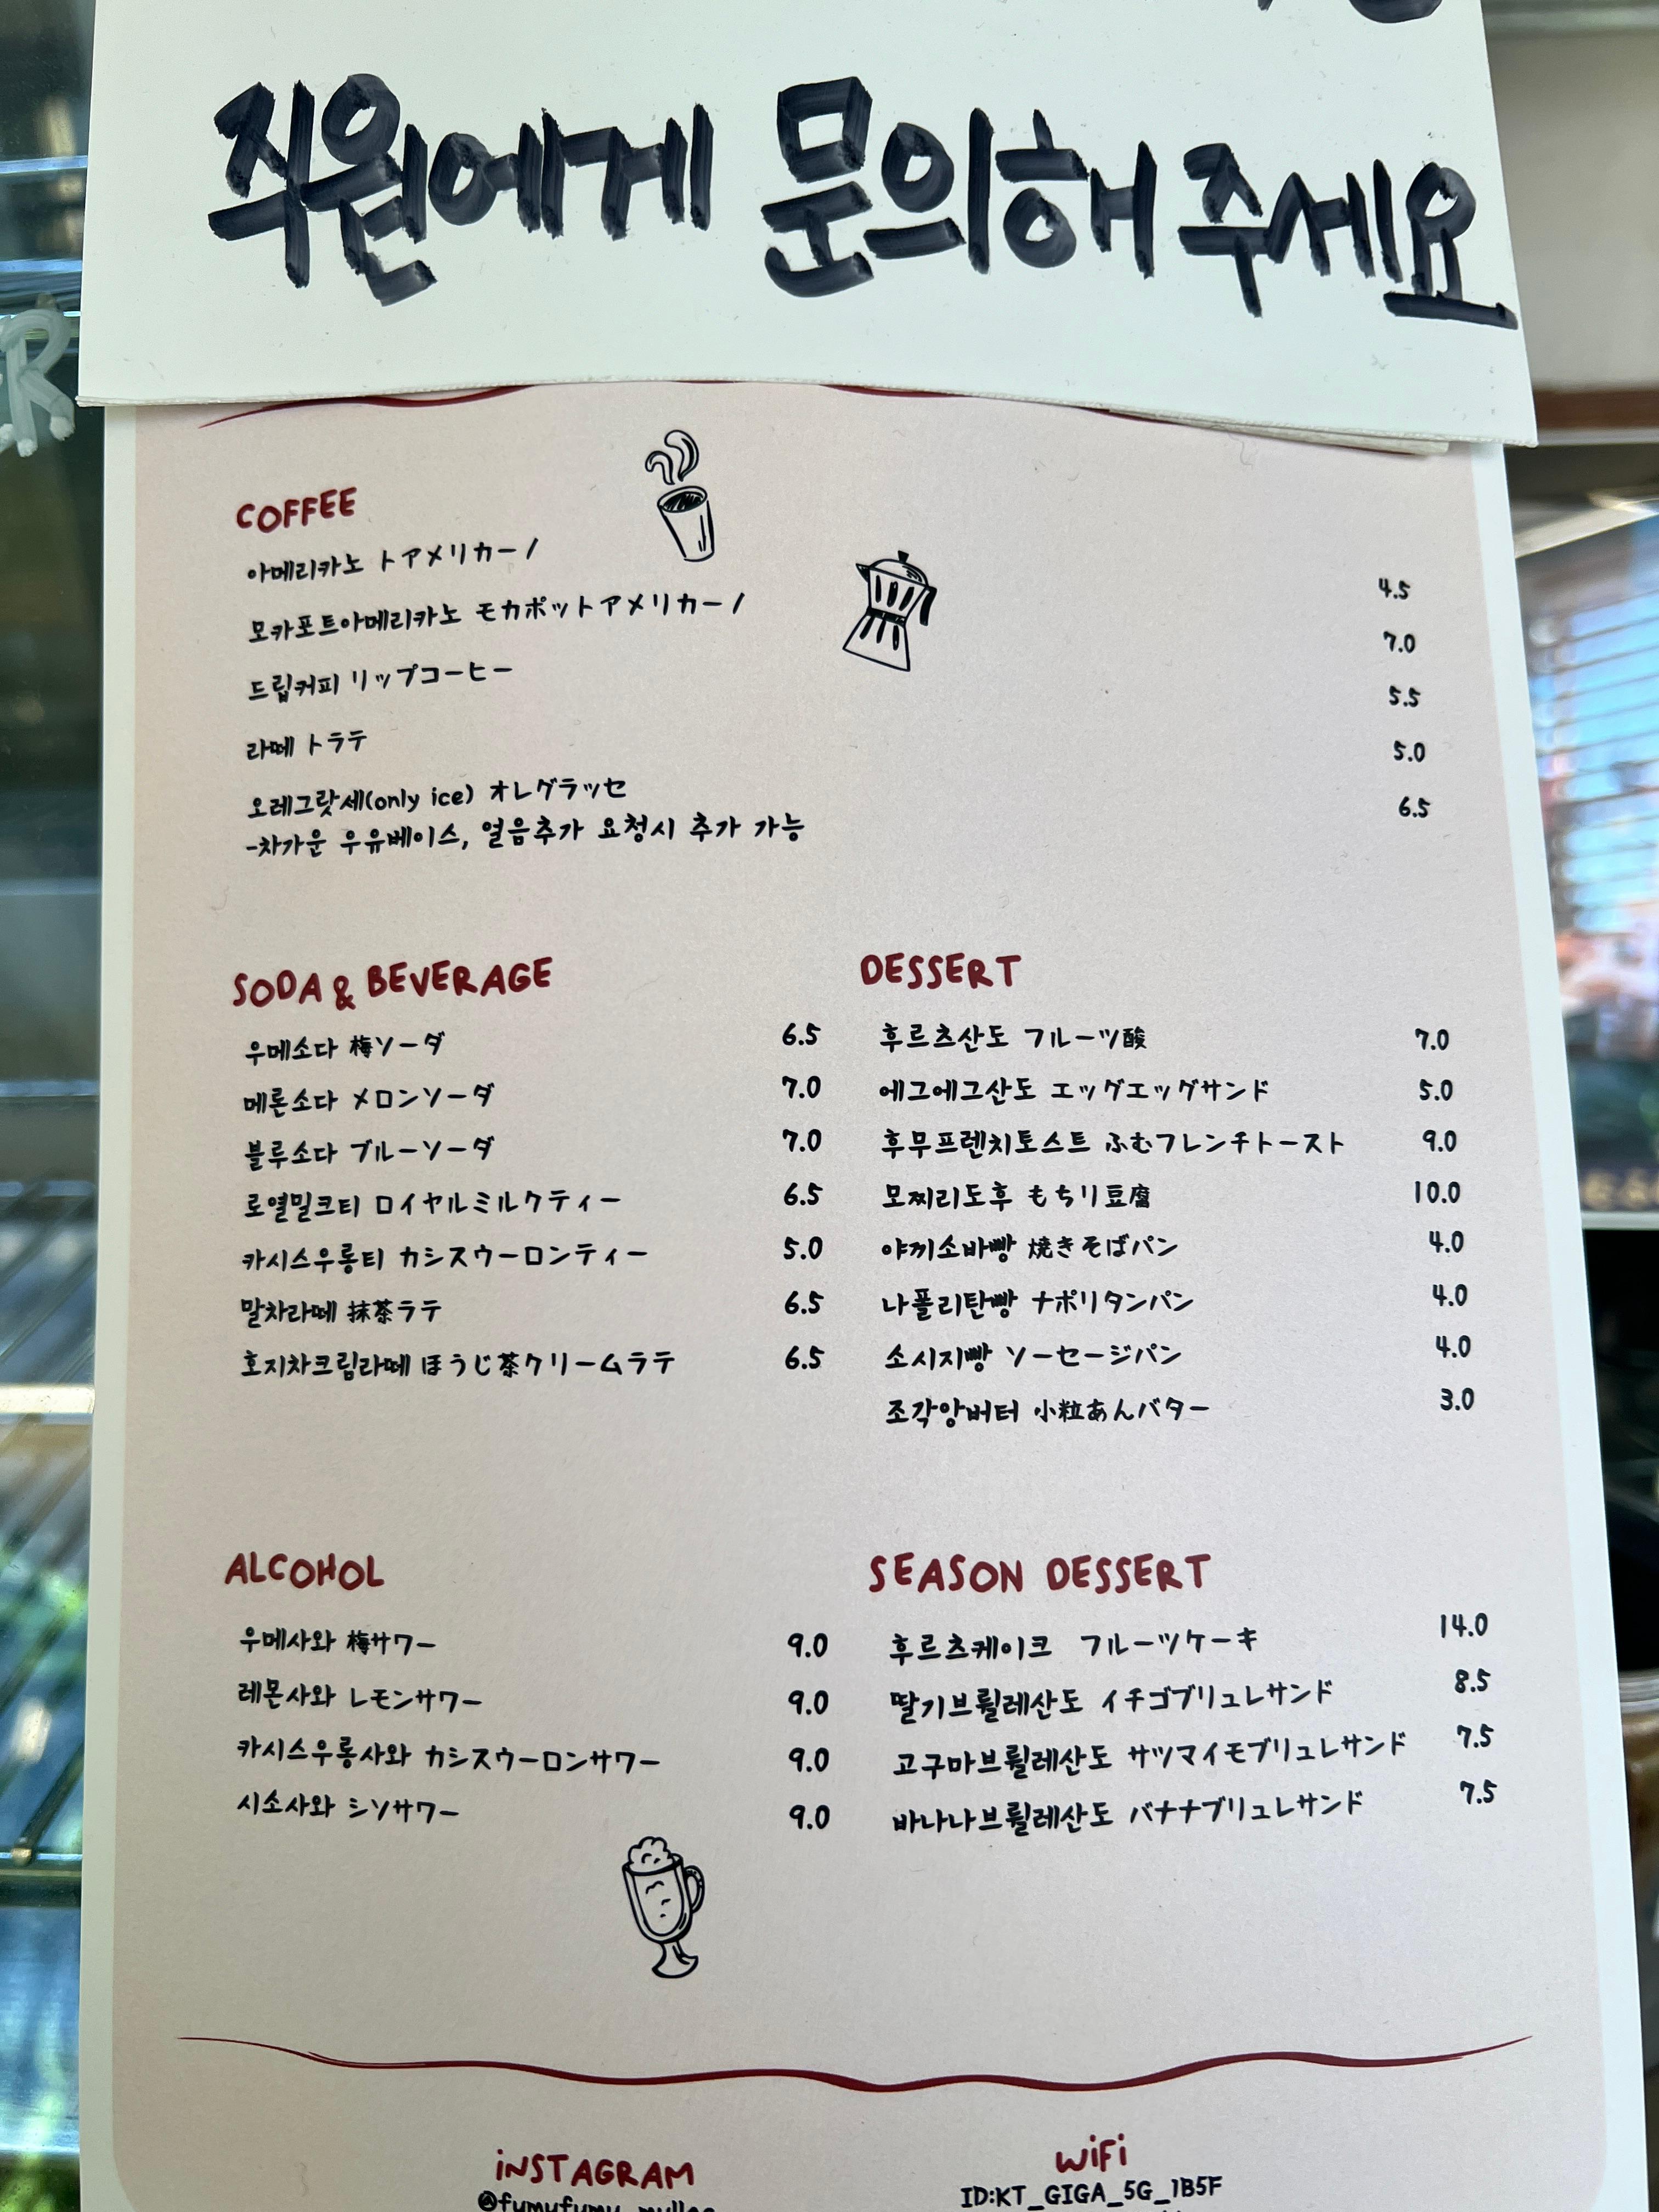 직원에게 문의해주세요
COFFEE
아메리카노 トアメリカーノ 4.5
모카포트아메리카노 モカポットアメリカーノ 7.0
드립커피 リップコーヒー 5.5
라떼 トラテ 5.0
오레그랏세(only ice) オレグラッセ 6.5
-차가운 우유베이스, 얼음추가 요청시 추가 가능
SODA & BEVERAGE
우메소다 梅ソーダ 6.5
메론소다 メロンソーダ 7.0
블루소다 ブルーソーダ 7.0
로열밀크티 ロイヤルミルクティー 6.5
카시스우롱티 カシスウーロンティー 5.0
말차라떼 抹茶ラテ 6.5
호지차크림라떼 ほうじ茶クリームラテ 6.5
DESSERT
후르츠산도 フルーツ酸 7.0
에그에그산도 エッグエッグサンド 5.0
후무프렌치토스트 ふむフレンチトースト 9.0
모찌리도후 もちり豆腐 10.0
야끼소바빵 焼きそばパン 4.0
나폴리탄빵 ナポリタンパン 4.0
소시지빵 ソーセージパン 4.0
조각앙버터 小粒あんバター 3.0
ALCOHOL
우메사와 梅サワー 9.0
레몬사와 レモンサワー 9.0
카시스우롱사와 カシスウーロンサワー 9.0
시소사와 シソサワー 9.0
SEASON DESSERT
후르츠케이크 フルーツケーキ 14.0
딸기브륄레산도 イチゴブリュレサンド 8.5
고구마브륄레산도 サツマイモブリュレサンド 7.5
바나나브륄레산도 バナナブリュレサンド 7.5
iNSTAGRAM
WiFi
ID:KT_GIGA_5G_1B5F